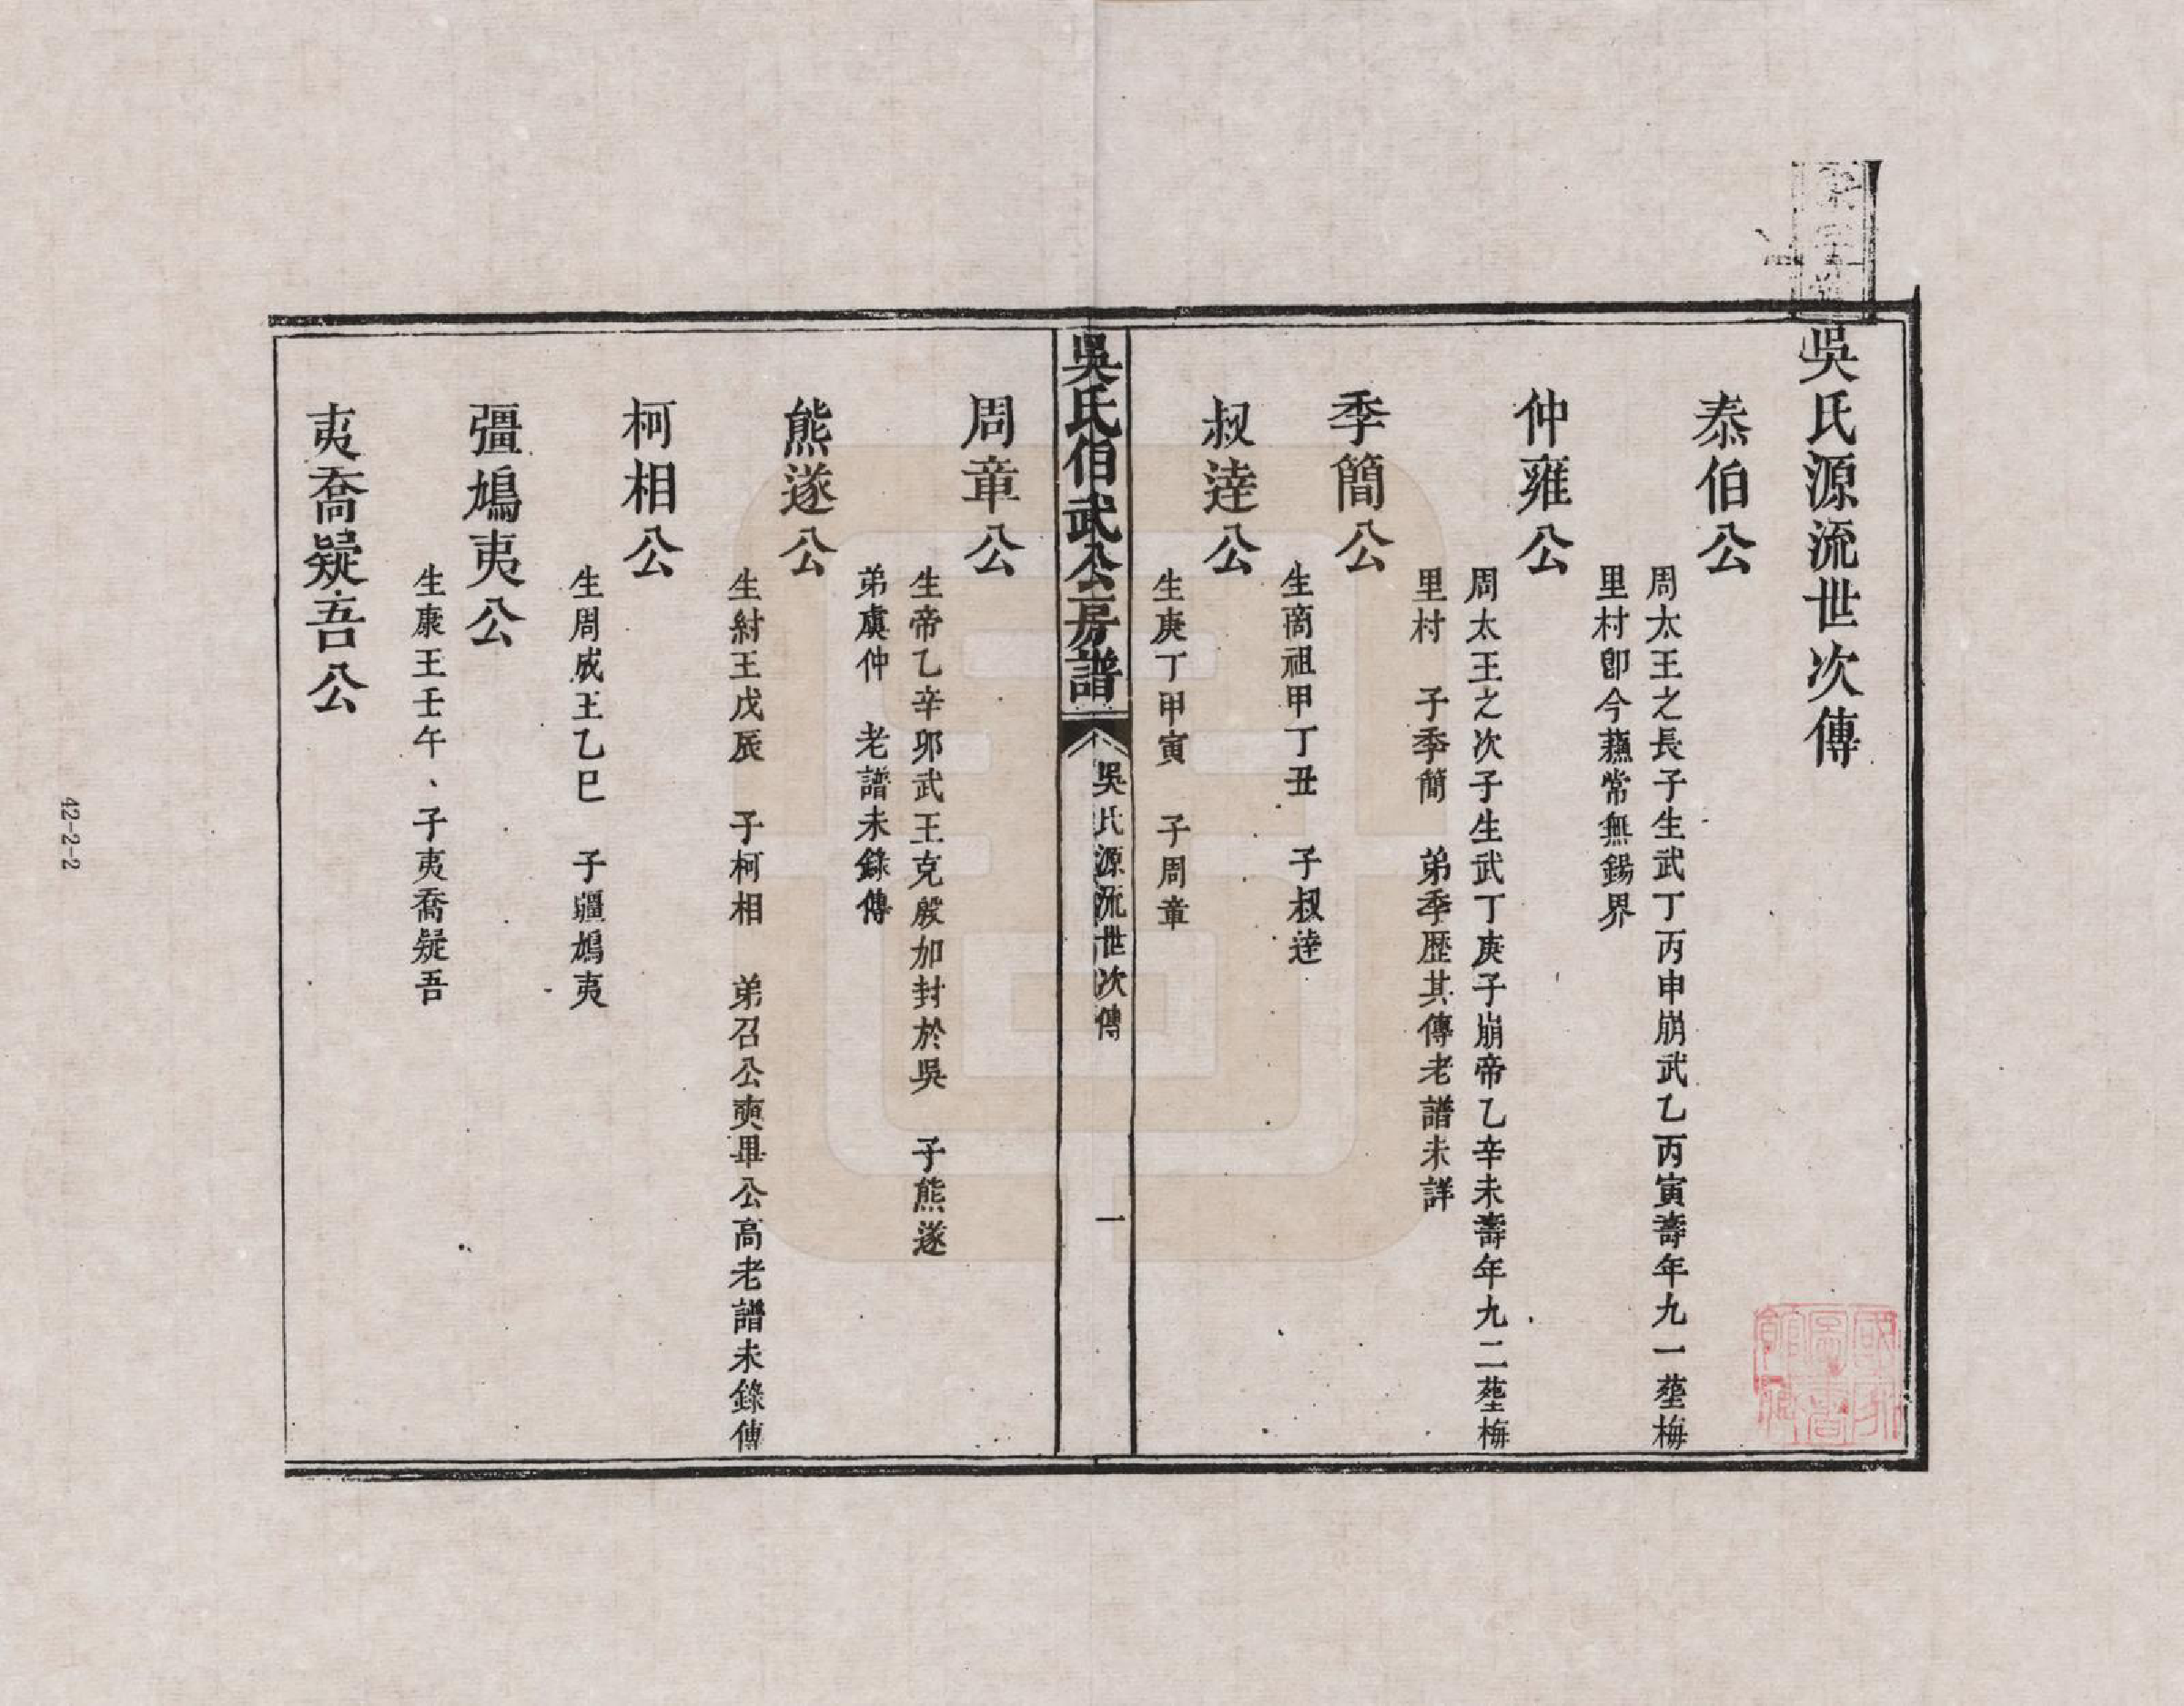 吳氏源流世次傳
泰伯公
周太王之長子生武丁丙申崩武乙丙寅壽年九一塟梅
里村卽今蘓常無錫界
仲雍公
周太王之次子生武丁庚子崩帝乙辛未壽年九二塟梅
里村　子季簡　弟季歷其傳老譜未詳
季簡公
生商祖甲丁丑　子叔逹
叔逹公
生庚丁甲寅　子周章
吳氏伯武公房譜
吳氏源流世次傳
一
周章公
生帝乙辛卯武王克殷加封於吳　子熊遂
弟虞仲　老譜未錄傳
熊遂公
生紂王戊辰　子柯相　弟召公奭畢公高老譜未錄傳
柯相公
生周成王乙巳　子疆鳩夷
彊鳩夷公
生康王壬午、子夷喬疑吾
夷喬疑吾公
42-2-2